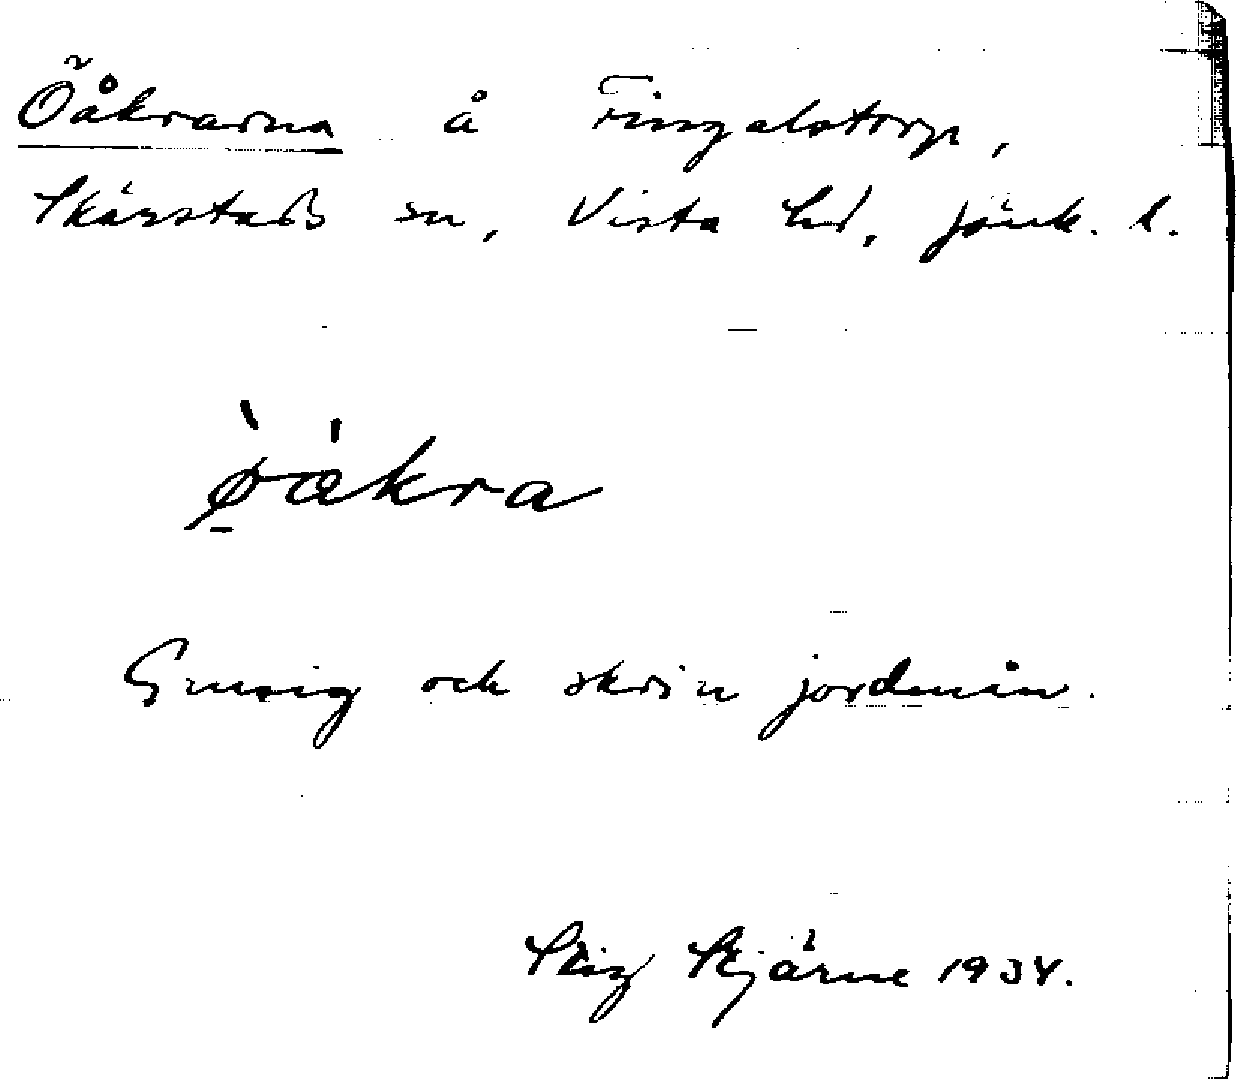 Ööåkrarna å Fingalstorp,
Skärstads sn, Vista hd, Jönk. l.
ø̀åkra
Grusig och skrin jordmån.
Stig Stjärne 1934.